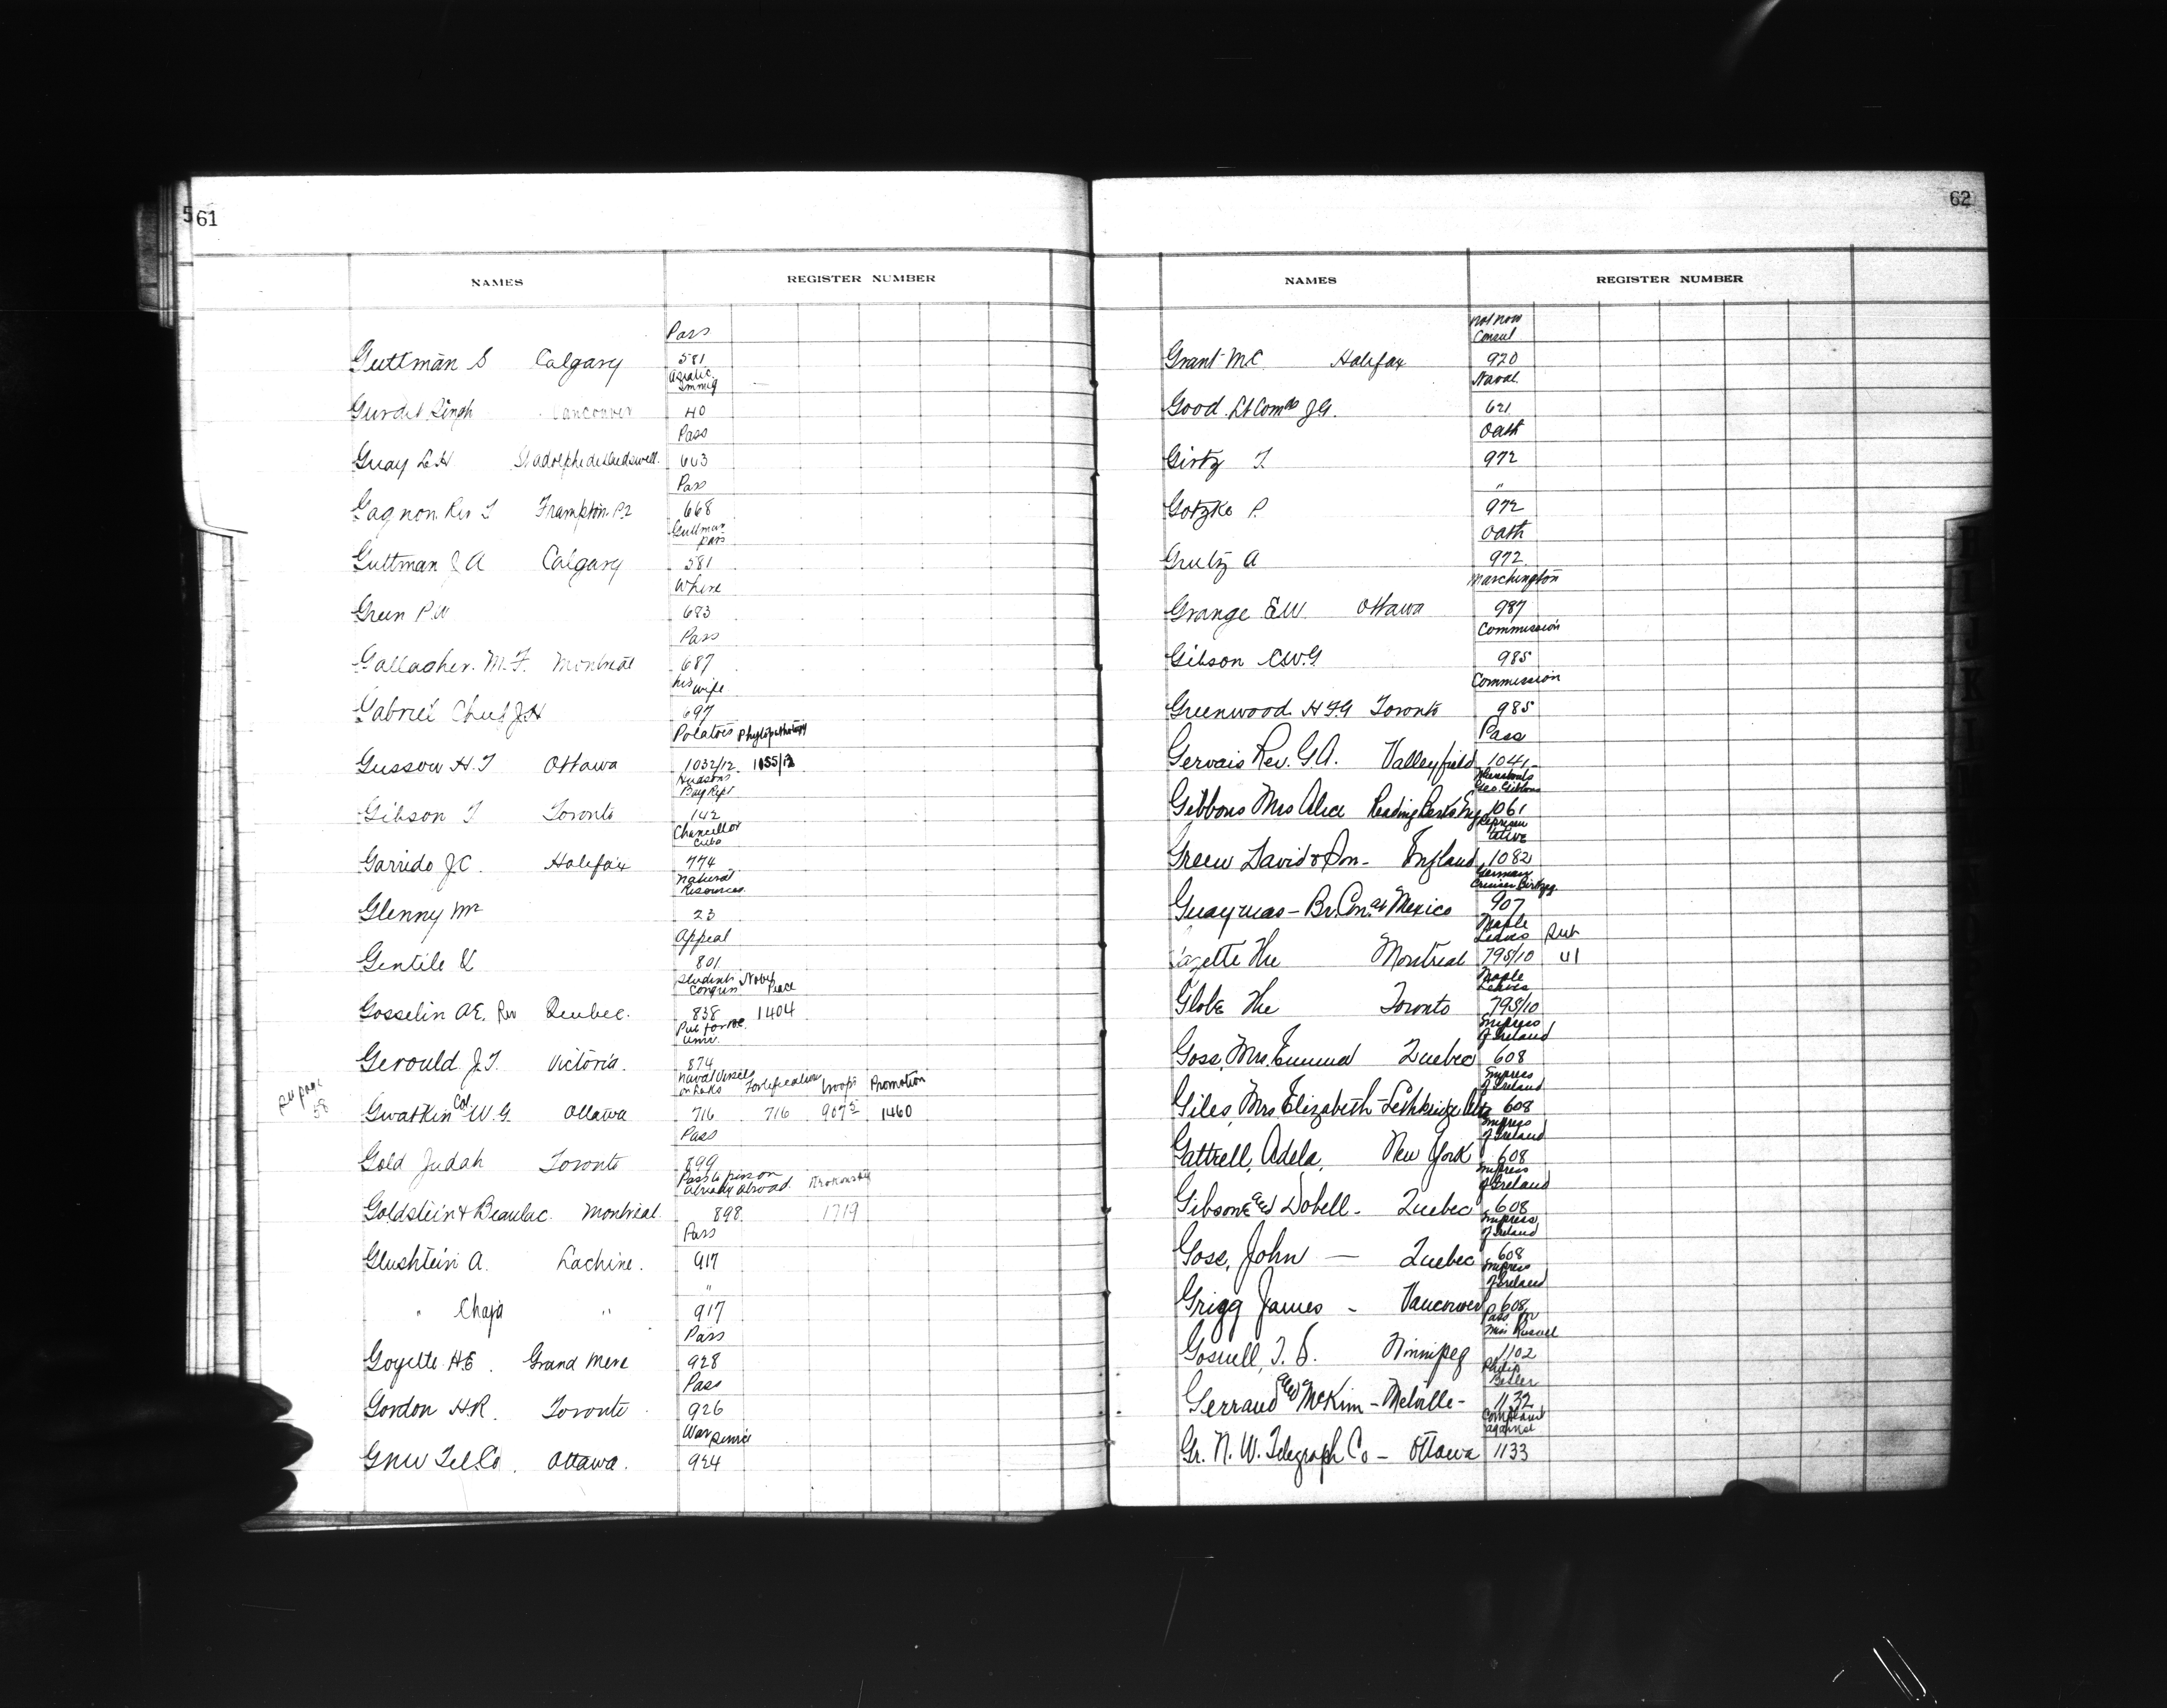 561
NAMES REGISTER NUMBER
Pass
Guttman S Calgary 581
Asiatic
Immig
Gurdit Singh Vancouver 40
Pass
Guay L.H. St adolphe de 663
Pass
Gagnon Rev J Frampton P2 668
Guttman
pass
Guttman J A Calgary 581
Where
Green P.W 683
Pass
Gallagher. M.F. Montreal 687
his wife
Gabriel Chief J.H 697
Potatoes Phytopathology
Gussow H.T Ottawa 1032/12 1155/12
Hudsons
Bay Rept
Gibson T Toronto 142
Chancellor
Cuba
Garrido J.C. Halifax 774
Natural
Resources
Glenny Mr 23
Appeal
Gentile V 801
Students Nobel
Congress Peace
Gosselin A.E. Rev Quebec. 838 1404
Pub for
Univ.
Gerould J.T. Victoria. 874
Naval Vessels Fortifications troops Promotion
on Lakes
see page
58
Gwatkin Col W.G. Ottawa 716 716 907 1460
Pass
Gold Judah Toronto 899
Pass to person
already abroad
Goldstein & Beaulac. Montreal. 898 1719
Pass
Glushtein A. Lachine. 917
"
" Chaja " 917
Pass
Goyette H.E. Grand Mere 928
Pass
Gordon H.R. Toronto 926
War Service
GNW Tel.Co. Ottawa. 924
62
NAMES REGISTER NUMBER
not now
Consul
Grant M.C. Halifax 920
Naval
Good Lt Comdr J.G. 621
Oath
Girtz J. 972
"
Gotzke P. 972
Oath
Grutz A 972
Marchington
Grange E.W. Ottawa 987
Commission
Gibson C.W.G 985
Commission
Greenwood H.F.G Toronto 985
Pass
Gervais Rev. G.A. Valleyfield 1041
Whereabouts
Geo. Gibbons
Gibbons Mrs Alice Reading Berks Eng 1061
Represen
tative
Green David & Son - England 1082
German
Cruiser
Guaymas - Br. Con. at Mexico 907
Maple
Leaves Sub
Gazette The Montreal 795/10 41
Maple
Leaves
Globe The Toronto 795/10
Empress
of Ireland
Goss, Mrs. Quebec 608
Empress
of Ireland
Giles, Mrs Elizabeth - Lethbridge Alta 608
Empress
of Ireland
Gattrell, Adela, New York 608
Empress
of Ireland
Gibsone and Dobell - Quebec 608
Empress
of Ireland
Goss, John — Quebec 608
Empress
of Ireland
Grigg James - Vancouver 608
Pass for
Miss Russell
Gosnell, T. S. Winnipeg 1102
Philip
Besler
Gerrand and McKim - Melville - 1132
Complaint
against
Gr. N. W. Telegraph Co - Ottawa 1133